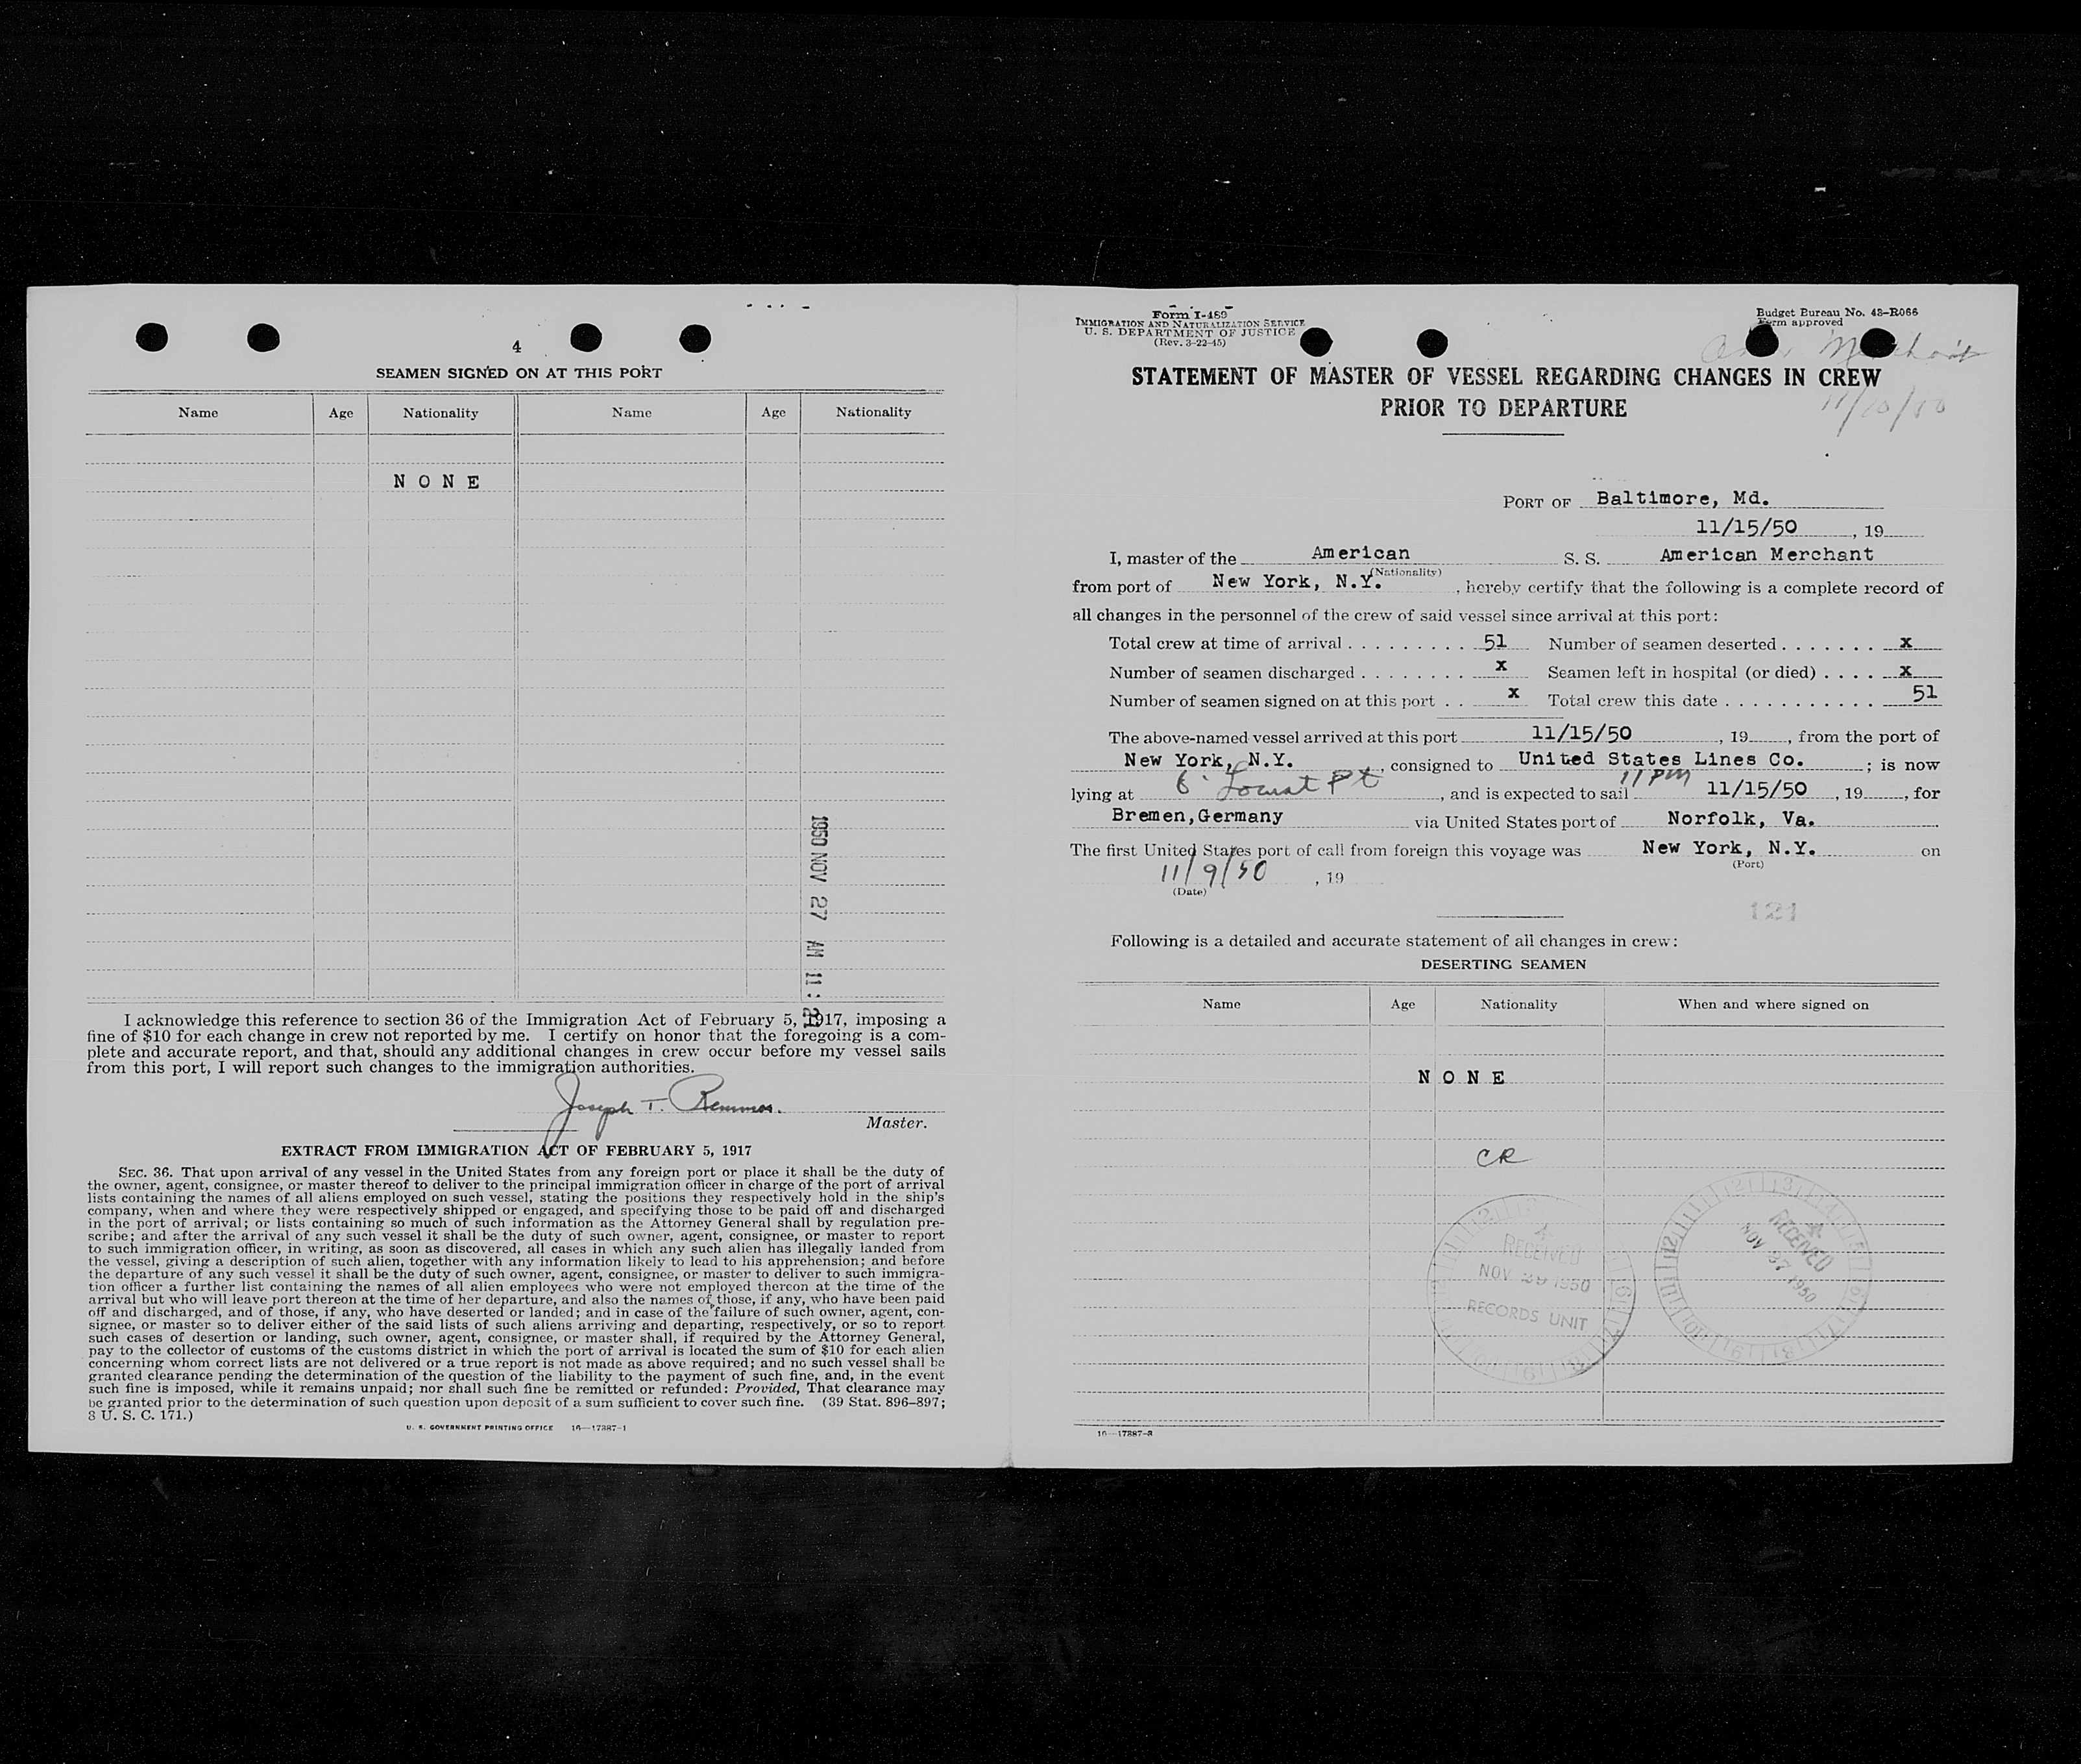 4
SEAMEN SIGNED ON AT THIS PORT
Name Age Nationality Name Age Nationality
NONE
1950 NOV 27 AM 11:
I acknowledge this reference to section 36 of the Immigration Act of February 5, 1917, imposing a
fine of $10 for each change in crew not reported by me. I certify on honor that the foregoing is a com-
plete and accurate report, and that, should any additional changes in crew occur before my vessel sails
from this port, I will report such changes to the immigration authorities.
Joseph T.
Master.
EXTRACT FROM IMMIGRATION ACT OF FEBRUARY 5, 1917
SEC. 36. That upon arrival of any vessel in the United States from any foreign port or place it shall be the duty of
the owner, agent, consignee, or master thereof to deliver to the principal immigration officer in charge of the port of arrival
lists containing the names of all aliens employed on such vessel, stating the positions they respectively hold in the ship's
company, when and where they were respectively shipped or engaged, and specifying those to be paid off and discharged
in the port of arrival; or lists containing so much of such information as the Attorney General shall by regulation pre-
scribe; and after the arrival of any such vessel it shall be the duty of such owner, agent, consignee, or master to report
to such immigration officer, in writing, as soon as discovered, all cases in which any such alien has illegally landed from
the vessel, giving a description of such alien, together with any information likely to lead to his apprehension; and before
the departure of any such vessel it shall be the duty of such owner, agent, consignee, or master to deliver to such immigra-
tion officer a further list containing the names of all alien employees who were not employed thereon at the time of the
arrival but who will leave port thereon at the time of her departure, and also the names of those, if any, who have been paid
off and discharged, and of those, if any, who have deserted or landed; and in case of the failure of such owner, agent, con-
signee, or master so to deliver either of the said lists of such aliens arriving and departing, respectively, or so to report
such cases of desertion or landing, such owner, agent, consignee, or master shall, if required by the Attorney General,
pay to the collector of customs of the customs district in which the port of arrival is located the sum of $10 for each alien
concerning whom correct lists are not delivered or a true report is not made as above required; and no such vessel shall be
granted clearance pending the determination of the question of the liability to the payment of such fine, and, in the event
such fine is imposed, while it remains unpaid; nor shall such fine be remitted or refunded: Provided, That clearance may
be granted prior to the determination of such question upon deposit of a sum sufficient to cover such fine. (39 Stat. 896-897;
8 U. S. C. 171.)
U. S. GOVERNMENT PRINTING OFFICE 16—17387-1
Form I-489
IMMIGRATION AND NATURALIZATION SERVICE
U. S. DEPARTMENT OF JUSTICE
(Rev. 3-22-45)
Budget Bureau No. 43-R066
Form approved
STATEMENT OF MASTER OF VESSEL REGARDING CHANGES IN CREW
PRIOR TO DEPARTURE
PORT OF Baltimore, Md.
11/15/50, 19
I, master of the American S. S. American Merchant
(Nationality)
from port of New York, N.Y., hereby certify that the following is a complete record of
all changes in the personnel of the crew of said vessel since arrival at this port:
Total crew at time of arrival 51 Number of seamen deserted x
Number of seamen discharged x Seamen left in hospital (or died) x
Number of seamen signed on at this port x Total crew this date 51
The above-named vessel arrived at this port 11/15/50, 19, from the port of
New York, N.Y., consigned to United States Lines Co.; is now
lying at 6 Locust Pt, and is expected to sail 11 PM 11/15/50, 19, for
Bremen, Germany via United States port of Norfolk, Va.
The first United States port of call from foreign this voyage was New York, N.Y. on
(Port)
11/9/50, 19
(Date)
121
Following is a detailed and accurate statement of all changes in crew:
DESERTING SEAMEN
Name Age Nationality When and where signed on
NONE
CR
RECEIVED
NOV 29 1950
RECORDS UNIT
RECEIVED
NOV 27 1950
16—17387-2